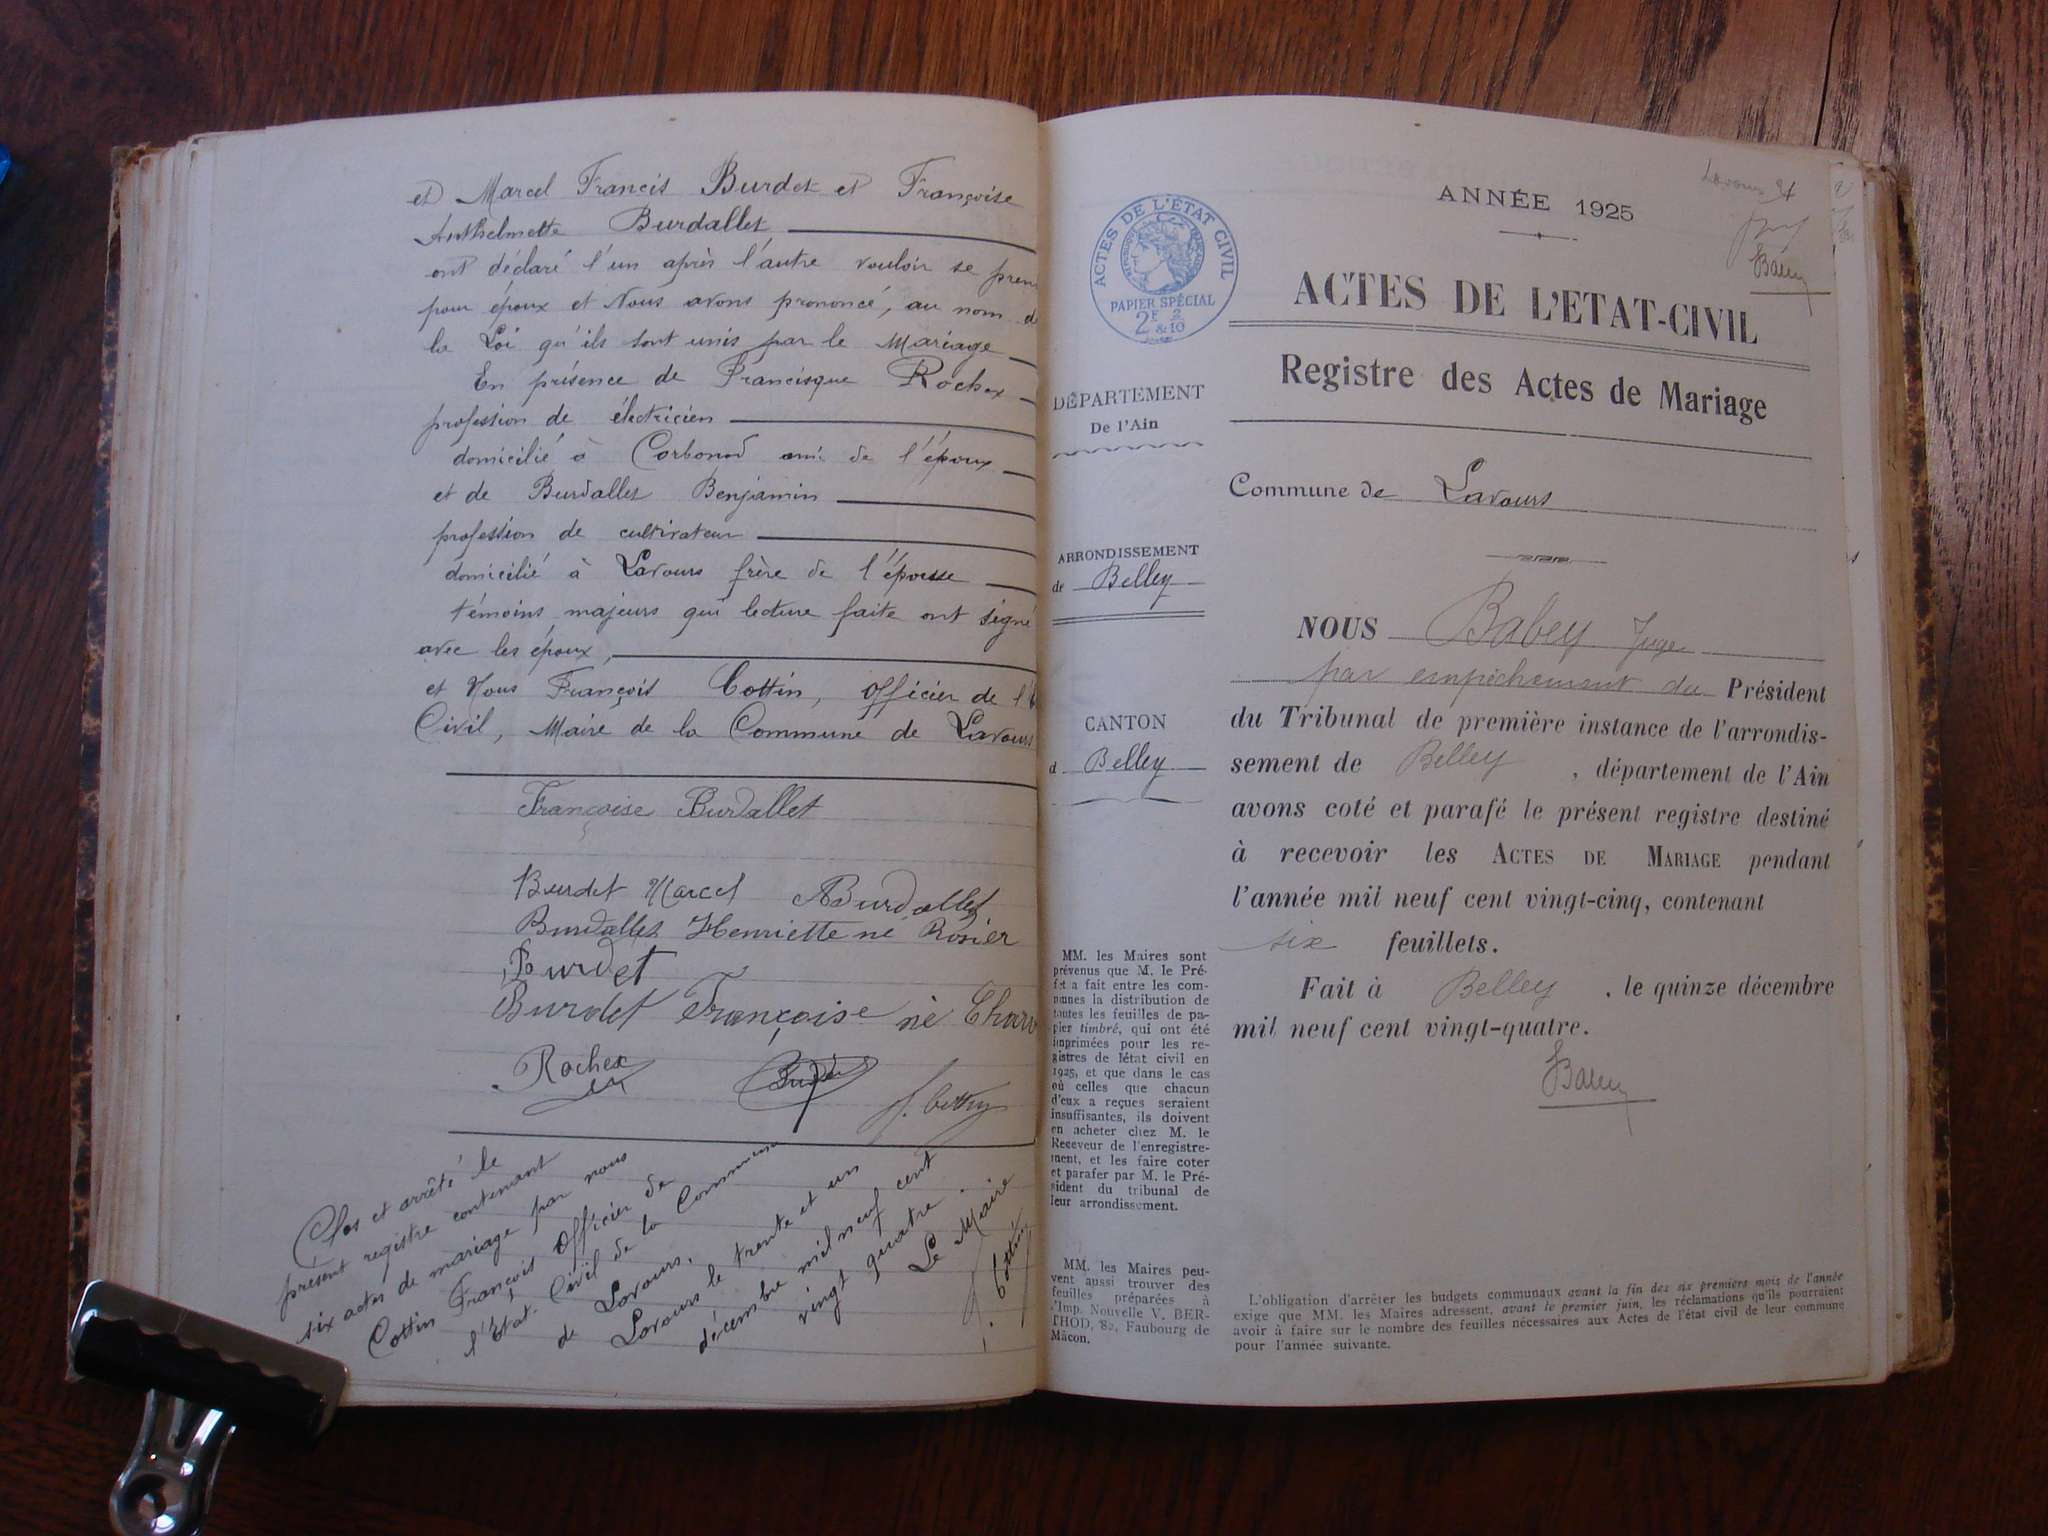 et Marcel Francis Burdet et Françoise
Anthelmette Burdallet
ont déclaré l'un après l'autre vouloir se pren
pour époux et Nous avons prononcé, au nom d
la Loi qu'ils sont unis par le Mariage
En présence de Francisque Rochex
profession de électricien
domicilié à Corbonod ami de l'époux
et de Burdallet Benjamin
profession de cultivateur
domicilié à Lavours frère de l'épouse
témoins majeurs qui lecture faite ont signé
avec les époux,
et Nous François Cottin, Officier de l'
Civil, Maire de la Commune de Lavours
Françoise Burdallet
Burdet Marcel ABurdallet
Burdallet Henriette né Rosier
Burdet
Burdet Françoise né Charv
Rochex
f. Cottin
Clos et arrêté le
présent registre contenant
six actes de mariage par nous
Cottin François Officier de
l'Etat. Civil de la Commune
de Lavours.
Lavours le trente et un
décembre mil neuf cent
vingt quatre.
Le Maire
f. Cottin
Lavours
ANNÉE 1925
ACTES DE L'ÉTAT CIVIL
PAPIER SPÉCIAL
2F 2
& 10
ACTES DE L'ETAT-CIVIL
Registre des Actes de Mariage
DÉPARTEMENT
De l'Ain
Commune de Lavours
ARRONDISSEMENT
de Belley
CANTON
d Belley
NOUS Babey Juge
par empêchement du Président
du Tribunal de première instance de l'arrondis-
sement de Belley, département de l'Ain
avons coté et parafé le présent registre destiné
à recevoir les ACTES DE MARIAGE pendant
l'année mil neuf cent vingt-cinq, contenant
six feuillets.
Fait à Belley, le quinze décembre
mil neuf cent vingt-quatre.
MM. les Maires sont
prévenus que M. le Pré-
fet a fait entre les com-
munes la distribution de
toutes les feuilles de pa-
pier timbré, qui ont été
imprimées pour les re-
gistres de létat civil en
1925, et que dans le cas
où celles que chacun
d'eux a reçues seraient
insuffisantes, ils doivent
en acheter chez M. le
Receveur de l'enregistre-
ment, et les faire coter
et parafer par M. le Pré-
sident du tribunal de
leur arrondissement.
MM. les Maires peu-
vent aussi trouver des
feuilles préparées à
l'Imp. Nouvelle V. BER-
THOD, 82, Faubourg de
Mâcon.
L'obligation d'arrêter les budgets communaux avant la fin des six premiers mois de l'année
exige que MM. les Maires adressent, avant le premier juin, les réclamations qu'ils pourraient
avoir à faire sur le nombre des feuilles nécessaires aux Actes de l'état civil de leur commune
pour l'année suivante.